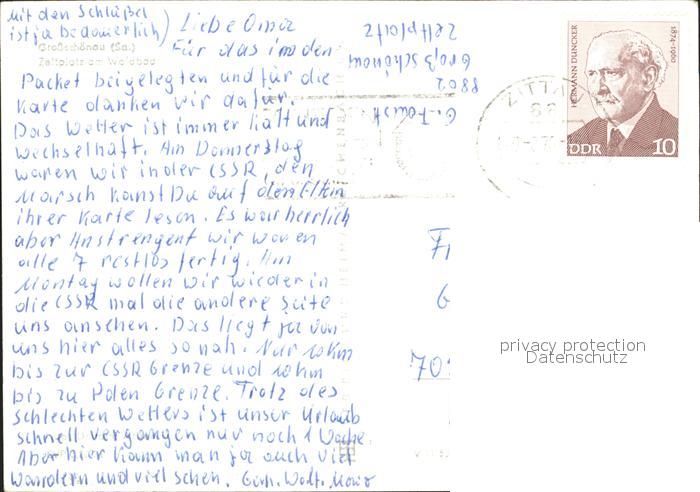 mit den Schlüßel
ist ja bedauerlich)
Liebe Oma
Großschönau (Sa.)
Zeltplatz am Waldbad
Für das in den
Packet beigelegten und für die
Karte danken wir dafür.
Das Wetter ist immer kalt und
wechselhaft. Am Donnerstag
waren wir in der CSSR, den
Marsch kanst Du auf den Eltern
ihrer Karte lesen. Es war herrlich
aber Anstrengent wir waren
alle 7 restlos fertig. Am
Montag wollen wir wieder in
die CSSR mal die andere Seite
uns ansehen. Das liegt ja von
uns hier alles so nah. Nur 10km
bis zur CSSR Grenze und 10km
bis zu Polen Grenze. Trotz des
schlechten Wetters ist unser Urlaub
schnell vergangen nur noch 1 Woche.
Aber hier kann man ja auch viel
wandern und viel sehen.
8802
Großschönau
Zeltplatz
HERMANN DUNCKER
1874-1960
DDR 10
ZITTAU
88
70
privacy protection
Datenschutz